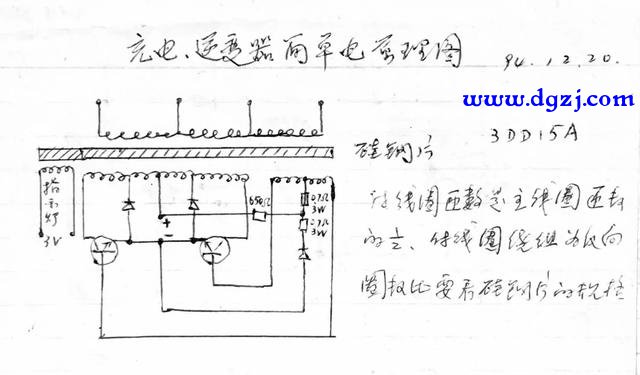 充电、逆变器简单电原理图 94.12.20.
www.dgzj.com
3DD15A
硅钢片
指示灯
3V
+
-
650Ω
3W
3W
付线圈匝数是主线圈匝数
的 付线圈绕组为反向
圈数比要看硅钢片的规格